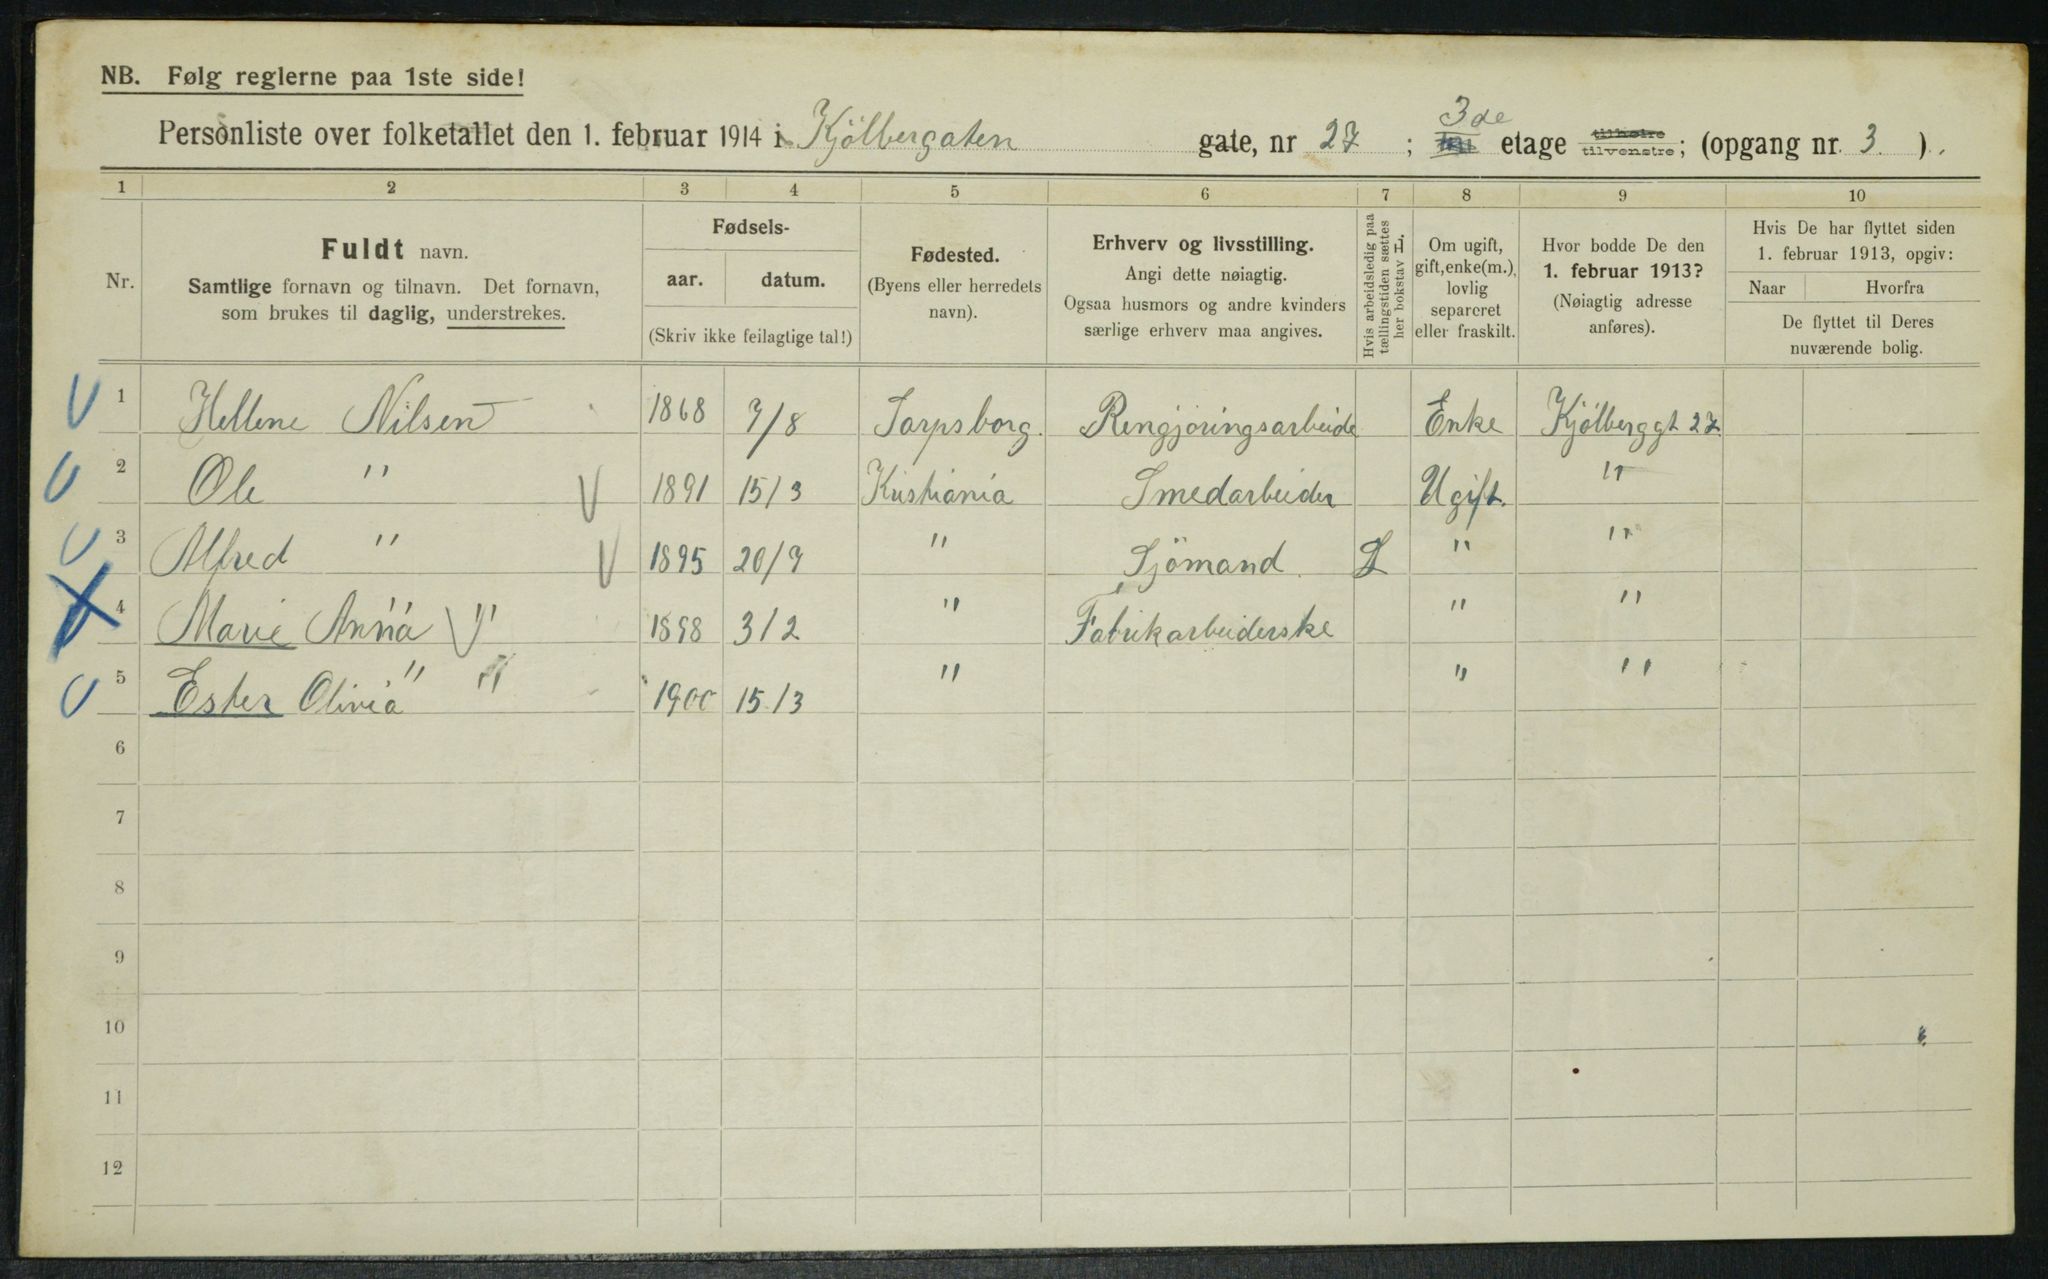 NB. Følg reglerne paa 1ste side!
Personliste over folketallet den 1. februar 1914 i Kjölbergaten gate, nr 27 ; 3de etage tilhøire tilvenstre; (opgang nr. 3 ).
1 2 3 4 5 6 7 8 9 10
Nr.
Fuldt navn.
Samtlige fornavn og tilnavn. Det fornavn,
som brukes til daglig, understrekes.
Fødsels-
aar. datum.
(Skriv ikke feilagtige tal!)
Fødested.
(Byens eller herredets
navn).
Erhverv og livsstilling.
Angi dette nøiagtig.
Ogsaa husmors og andre kvinders
særlige erhverv maa angives.
Hvis arbeidsledig paa
tællingstiden sættes
her bokstav L.
Om ugift,
gift, enke(m.),
lovlig
separeret
eller fraskilt.
Hvor bodde De den
1. februar 1913?
(Nøiagtig adresse
anføres).
Hvis De har flyttet siden
1. februar 1913, opgiv:
Naar Hvorfra
De flyttet til Deres
nuværende bolig.
1 Hellene Nilsen 1868 7/8 Sarpsborg. Rengjöringsarbeide Enke Kjölberggt 27
2 Ole " 1891 15/3 Kristiania Smedarbeider Ugift. "
3 Alfred " 1895 20/7 " Sjömand L " "
4 Marie Anna " 1898 3/2 " Fabrikarbeiderske " "
5 Ester Olivia " 1900 15/3 " " "
6
7
8
9
10
11
12